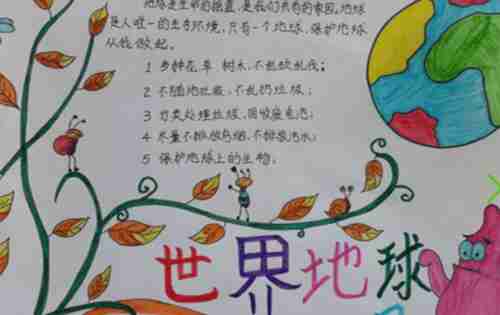 地球是生命的摇篮,是我们共有的家园。地球
是人唯一的生存环境,只有一个地球,保护地球
从我做起。
1 多种花草 树木,不乱砍乱伐;
2 不随地吐痰,不乱扔垃圾;
3 分类处理垃圾,回收废电池;
4 尽量不排放乌烟,不排放污水;
5 保护地球上的生物;
世界地球